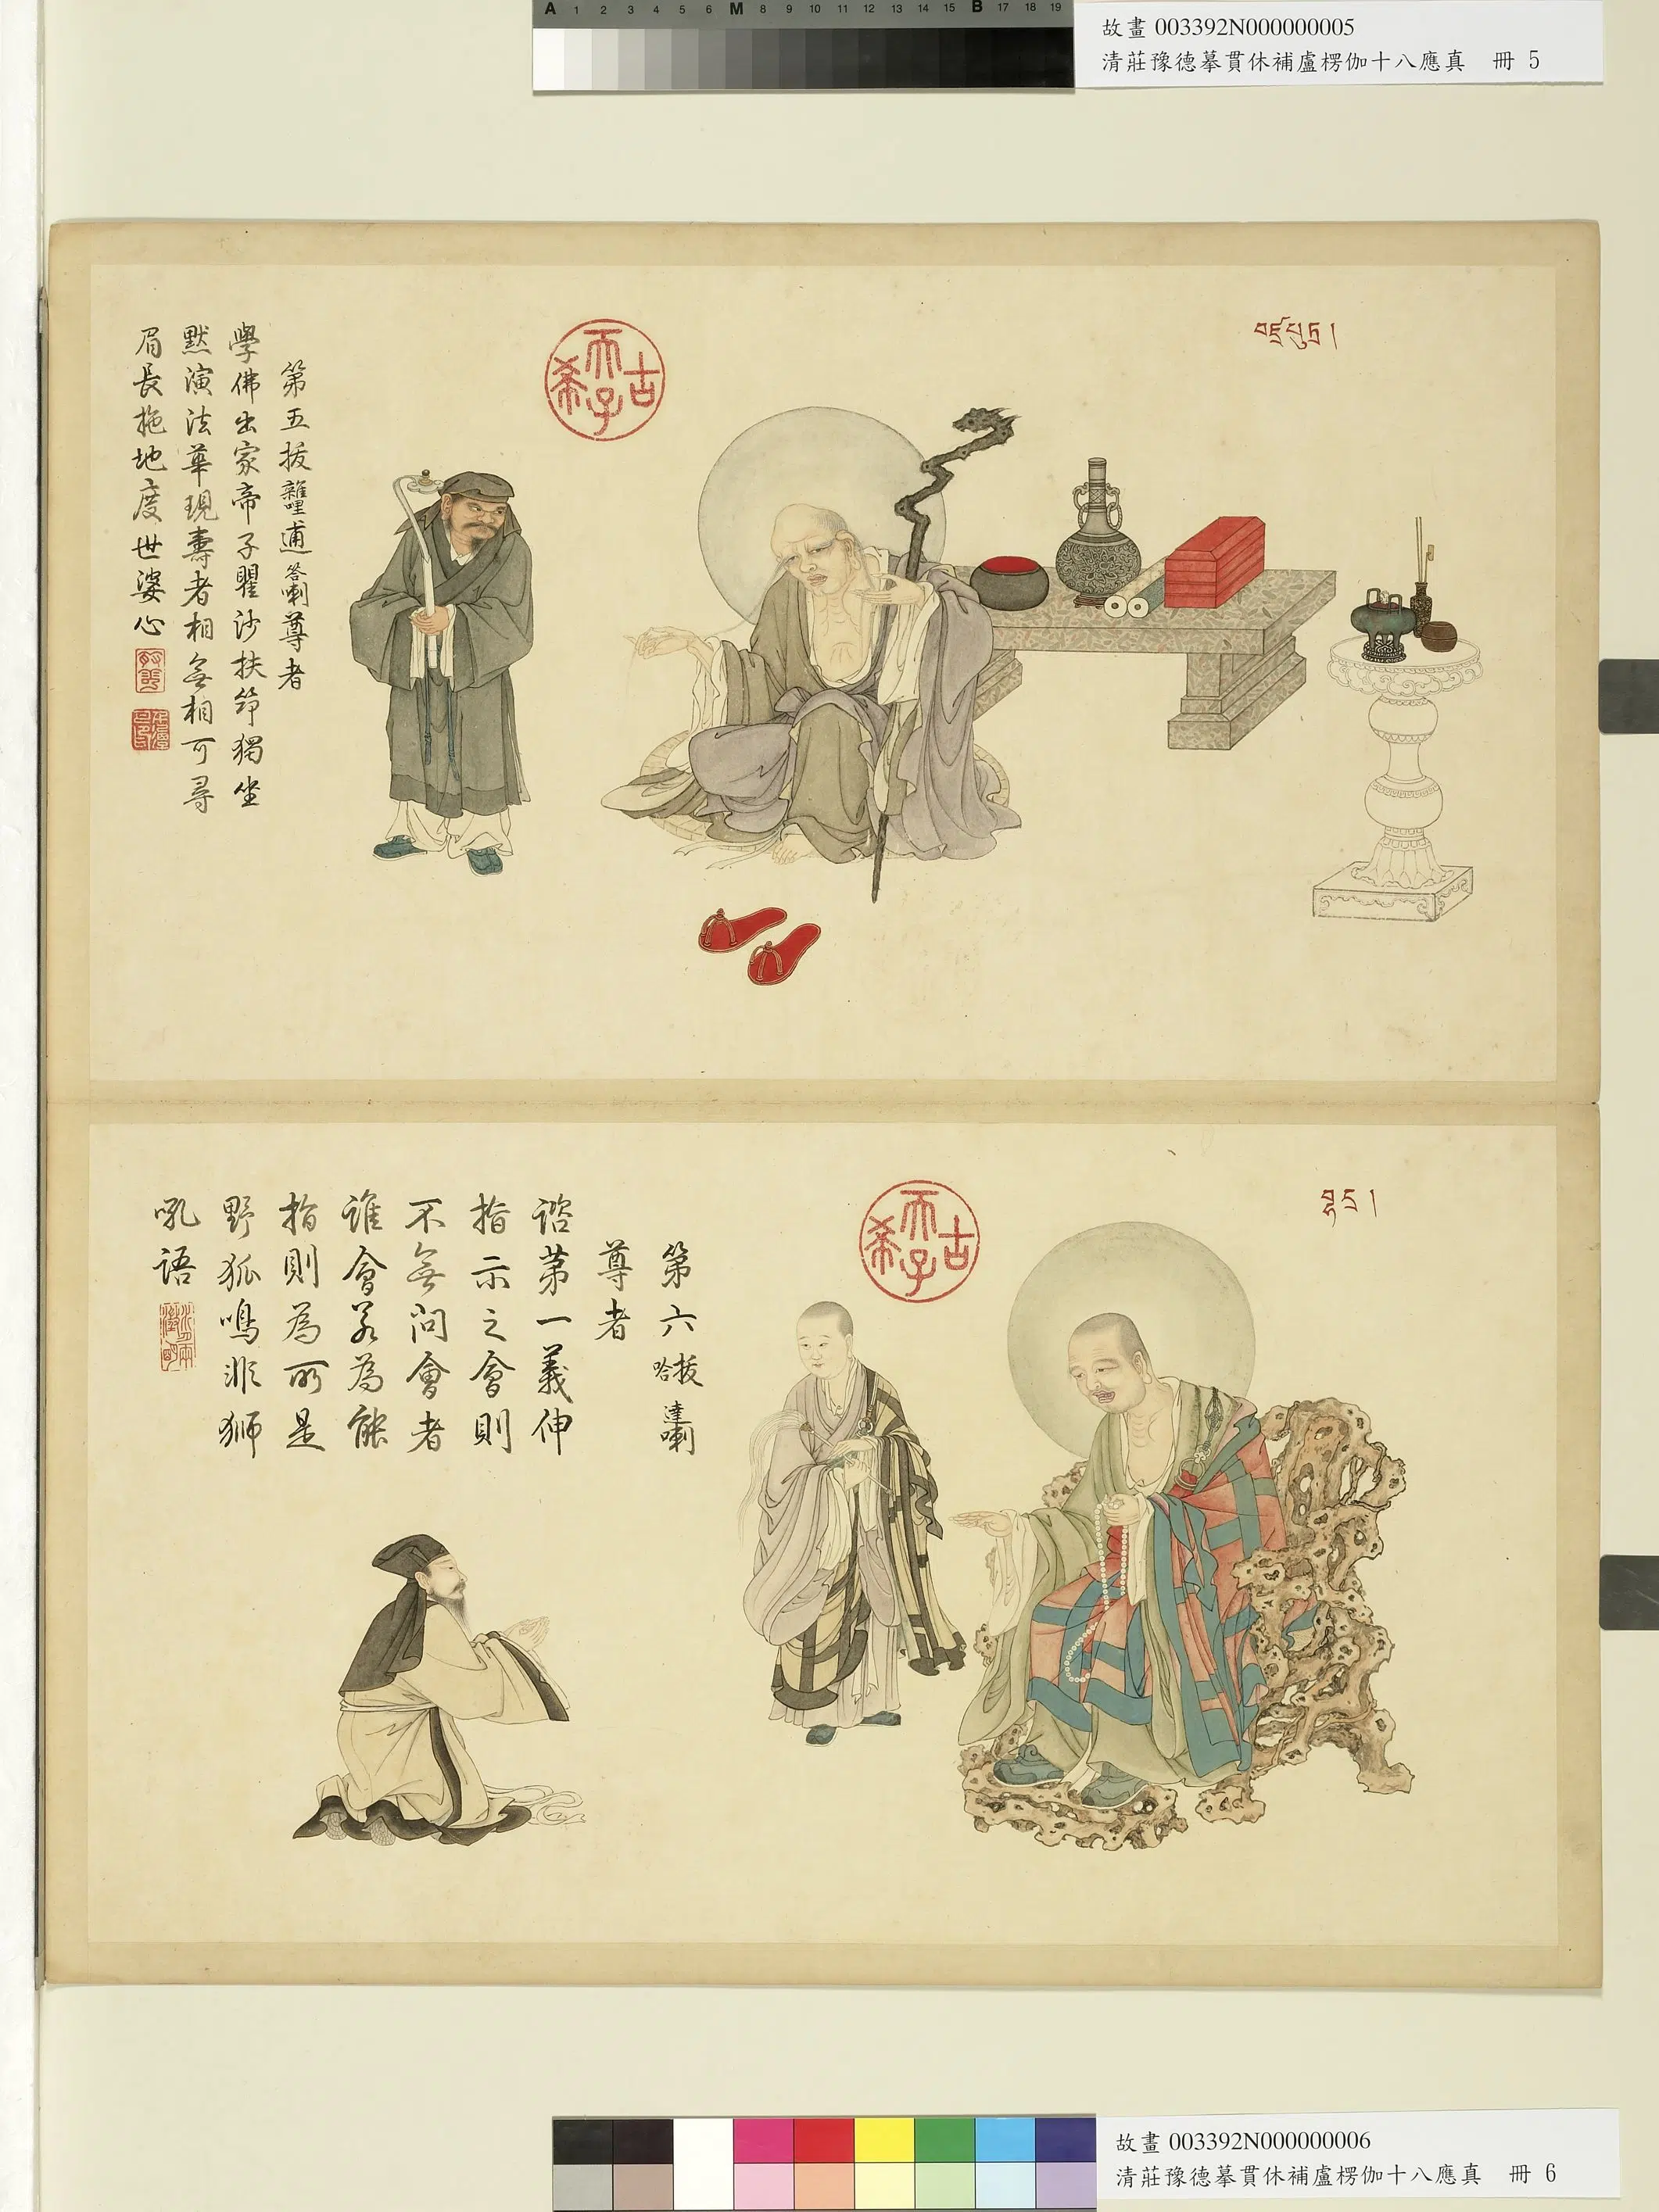 A 1 2 3 4 5 6 M 8 9 10 11 12 13 14 15 B 17 18 19
故畫 003392N000000005
清莊豫德摹貫休補盧楞伽十八應真 冊 5
古希天子
第五拔雜哩逋答喇尊者
學佛出家帝子瞿沙扶筇獨坐
默演法華現壽者相無相可尋
眉長拖地度世婆心
古希天子
第六拔哈達喇
尊者
諮第一義伸
指示之會則
不無問會者
誰會若為能
指則為所是
野狐鳴非獅
吼語
故畫 003392N000000006
清莊豫德摹貫休補盧楞伽十八應真 冊 6